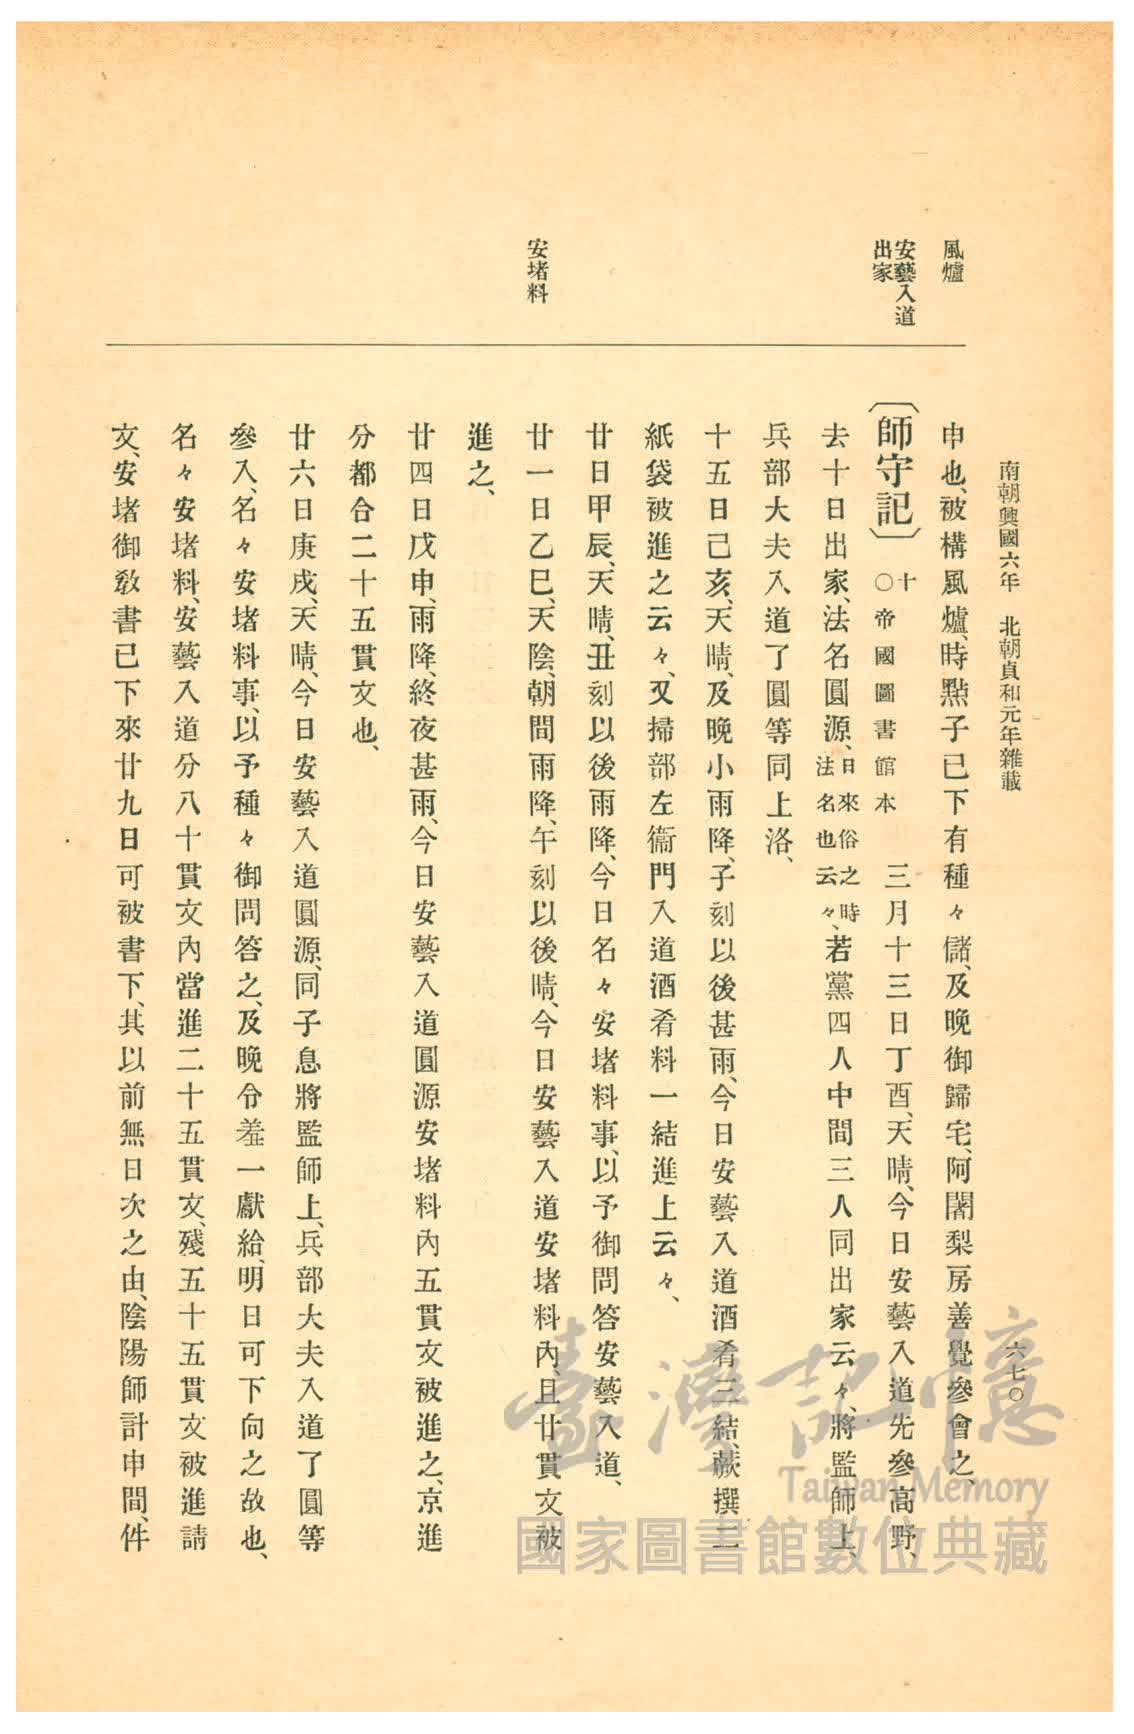 南朝興國六年　北朝貞和元年雜載
六七〇
風爐
安藝入道
出家
安堵料
申也、被構風爐、時點子已下有種々儲、及晚御歸宅、阿闍梨房善覺參會之、
〔師守記〕十〇帝國圖書館本　三月十三日丁酉、天晴、今日安藝入道先參高野、
去十日出家、法名圓源、日來俗之時法名也云々、若黨四人中間三人同出家云々、將監師上、
兵部大夫入道了圓等同上洛、
十五日己亥、天晴、及晚小雨降、子刻以後甚雨、今日安藝入道酒肴三結、蕨撰二
紙袋被進之云々、又掃部左衞門入道酒肴料一結進上云々、
廿日甲辰、天晴、丑刻以後雨降、今日名々安堵料事、以予御問答安藝入道、
廿一日乙巳、天陰、朝間雨降、午刻以後晴、今日安藝入道安堵料內、且廿貫文被
進之、
廿四日戊申、雨降、終夜甚雨、今日安藝入道圓源安堵料內五貫文被進之、京進
分都合二十五貫文也、
廿六日庚戌、天晴、今日安藝入道圓源、同子息將監師上、兵部大夫入道了圓等
參入、名々安堵料事、以予種々御問答之、及晚令羞一獻給、明日可下向之故也、
名々安堵料、安藝入道分八十貫文內當進二十五貫文、殘五十五貫文被進請
文、安堵御敎書已下來廿九日可被書下、其以前無日次之由、陰陽師計申間、件
臺灣記憶
Taiwan Memory
國家圖書館數位典藏